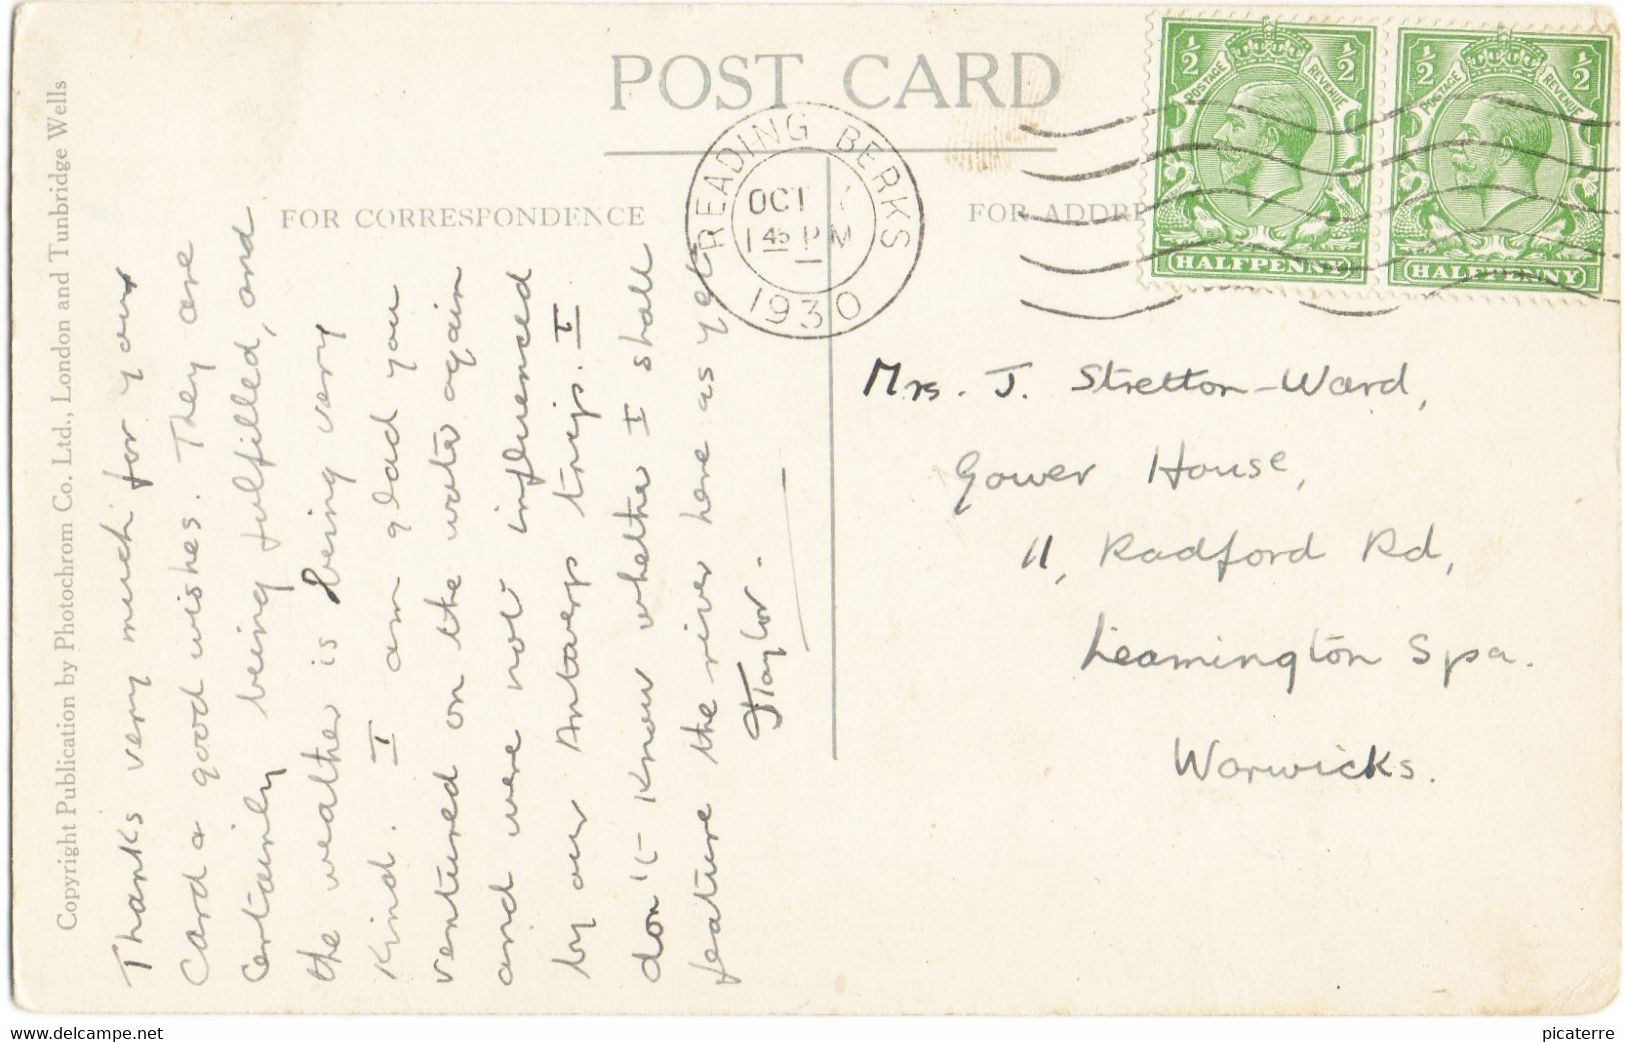 POST CARD
FOR CORRESPONDENCE
FOR ADDRE
Copyright Publication by Photochrom Co. Ltd., London and Tunbridge Wells
READING BERKS
OCT
1 45 PM
1930
1/2 1/2
POSTAGE REVENUE
HALFPENNY
1/2 1/2
POSTAGE REVENUE
HALFPENNY
Thanks very much for your
card & good wishes. They are
certainly being fulfilled, and
the weather is being very
kind. I am glad you
ventured on the water again
and were not influenced
by our Antwerp trip. I
don't know whether I shall
feature the river here as yet
JTaylor.
Mrs. J. Stretton-Ward,
Gower House,
11, Radford Rd,
Leamington Spa.
Warwicks.
www.delcampe.net
picaterre